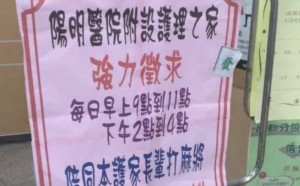 陽明醫院附設護理之家
強力徵求
每日早上9點到11點
下午2點到4點
陪同本護家長輩打麻將
發